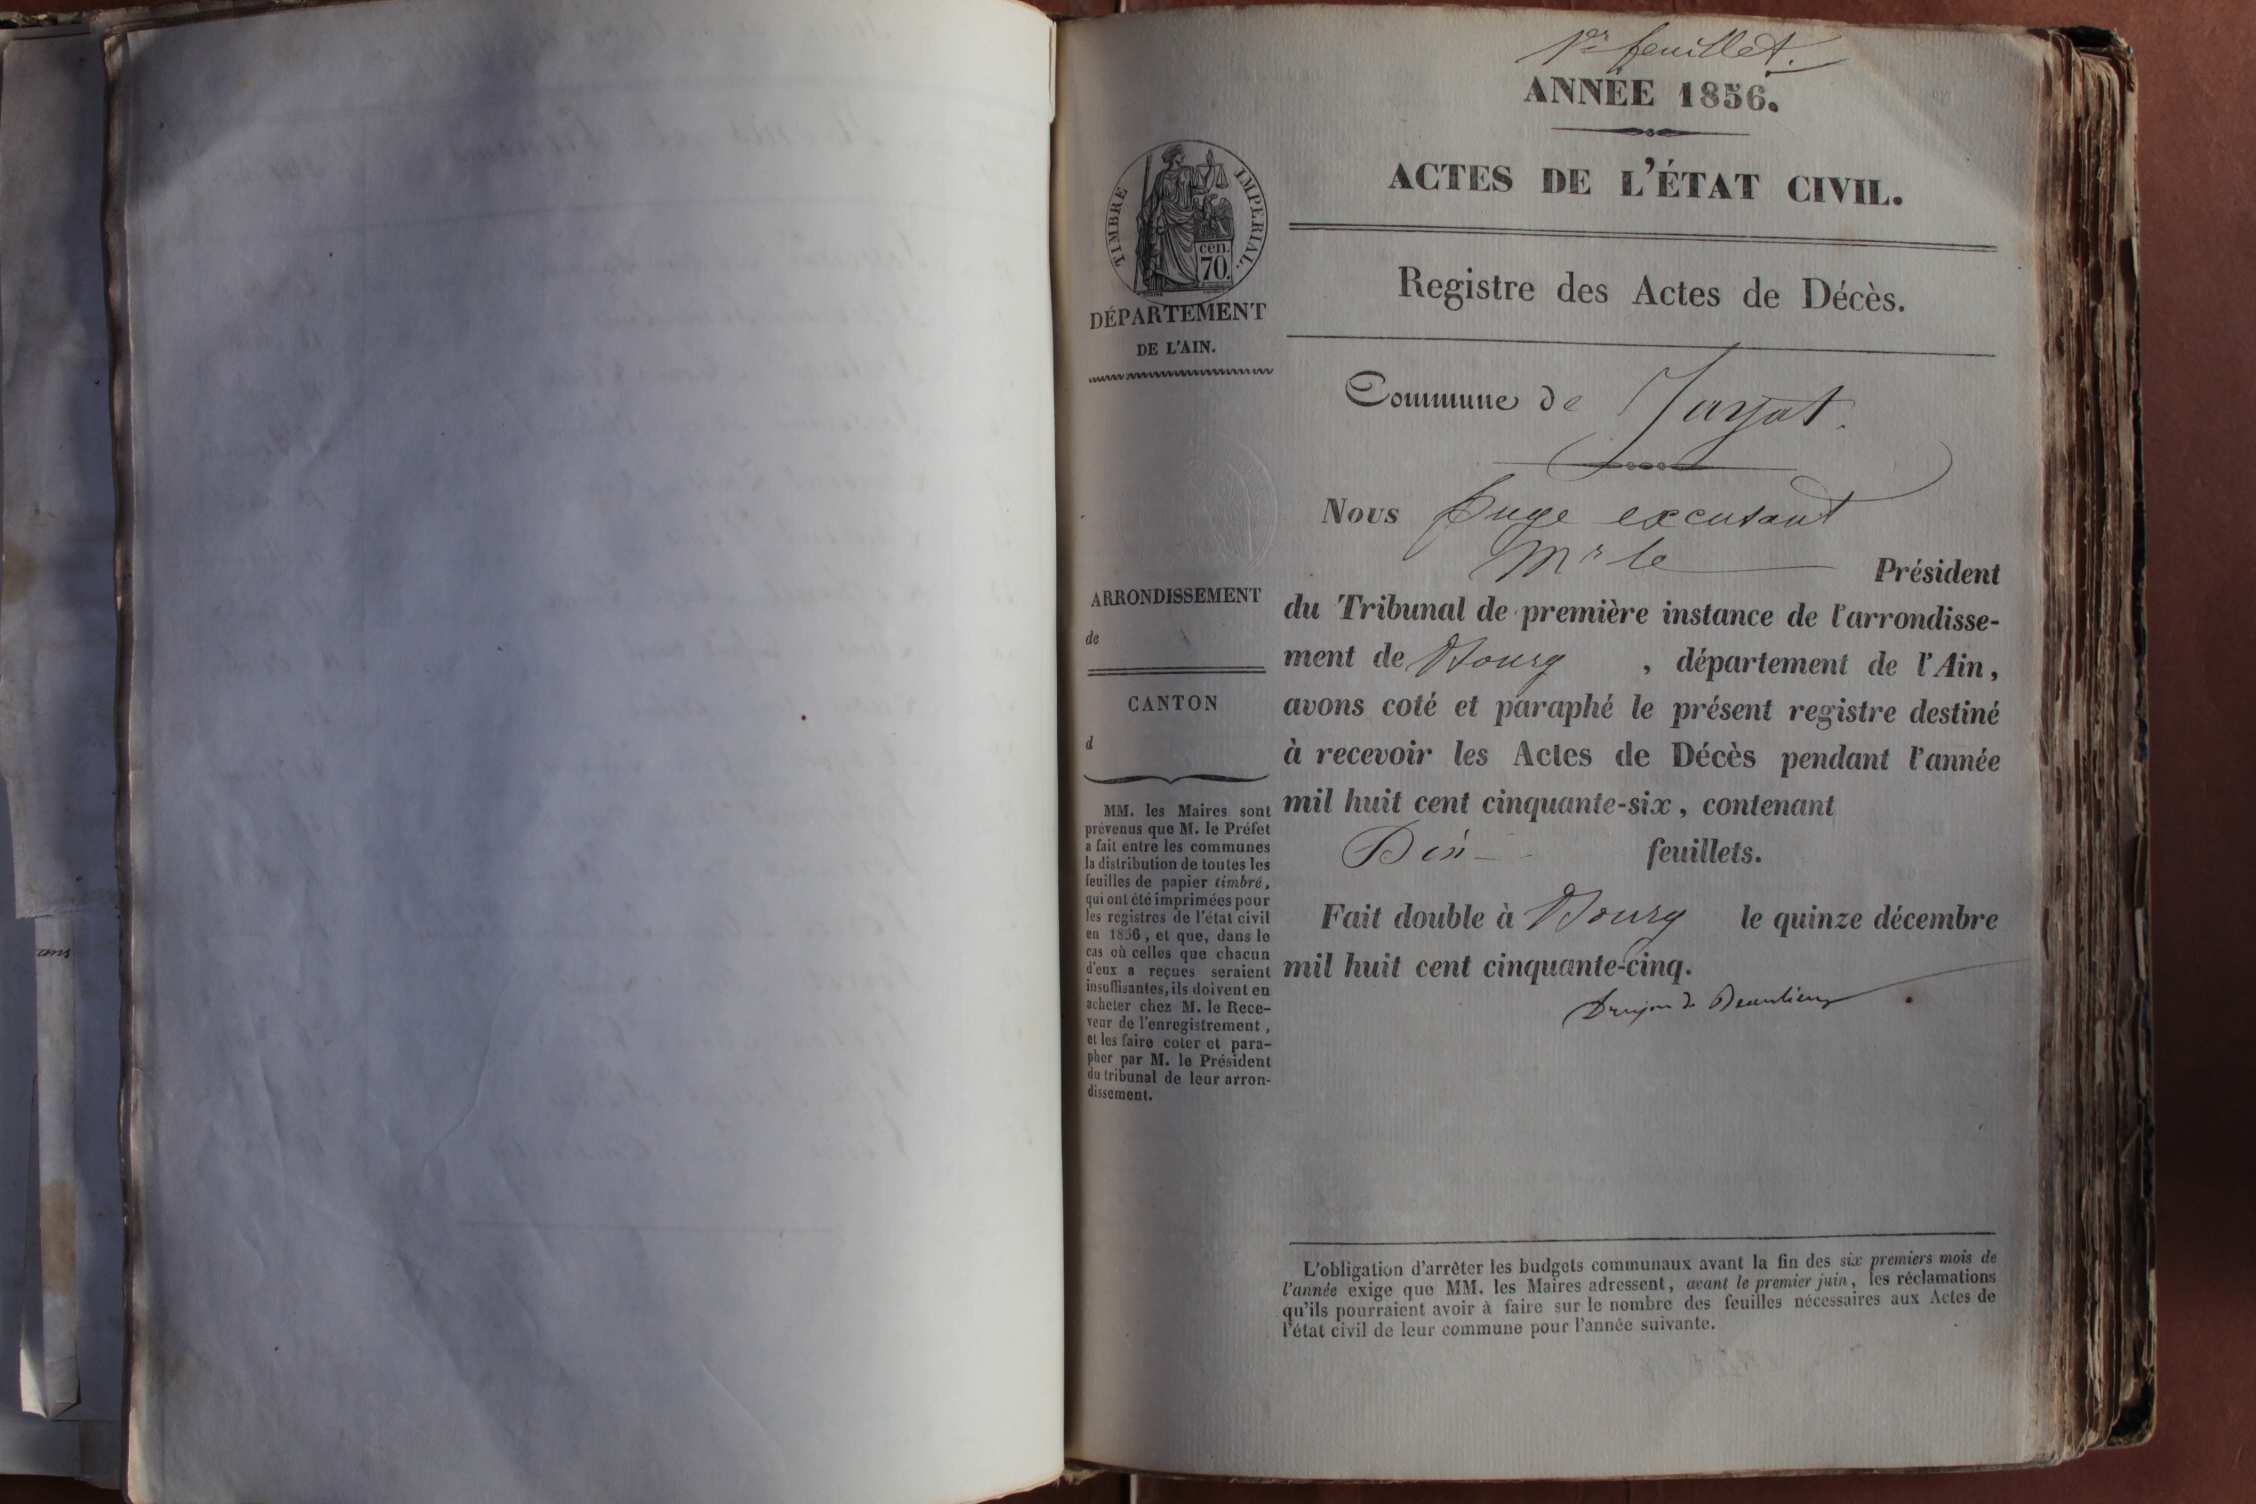 1er feuillet.
ANNÉE 1856.
ACTES DE L'ÉTAT CIVIL.
Registre des Actes de Décès.
TIMBRE IMPERIAL.
cen.
70.
DÉPARTEMENT
DE L'AIN.
Commune de Jayat.
Nous Juge excusant
Mr le Président
du Tribunal de première instance de l'arrondisse-
ment de Bourg, département de l'Ain,
avons coté et paraphé le présent registre destiné
à recevoir les Actes de Décès pendant l'année
mil huit cent cinquante-six, contenant
feuillets.
Fait double à Bourg le quinze décembre
mil huit cent cinquante-cinq.
Drujon de Beaulieu
ARRONDISSEMENT
de
CANTON
d
MM. les Maires sont
prévenus que M. le Préfet
a fait entre les communes
la distribution de toutes les
feuilles de papier timbré,
qui ont été imprimées pour
les registres de l'état civil
en 1856, et que, dans le
cas où celles que chacun
d'eux a reçues seraient
insuffisantes, ils doivent en
acheter chez M. le Rece-
veur de l'enregistrement,
et les faire coter et para-
pher par M. le Président
du tribunal de leur arron-
dissement.
L'obligation d'arrêter les budgets communaux avant la fin des six premiers mois de
l'année exige que MM. les Maires adressent, avant le premier juin, les réclamations
qu'ils pourraient avoir à faire sur le nombre des feuilles nécessaires aux Actes de
l'état civil de leur commune pour l'année suivante.